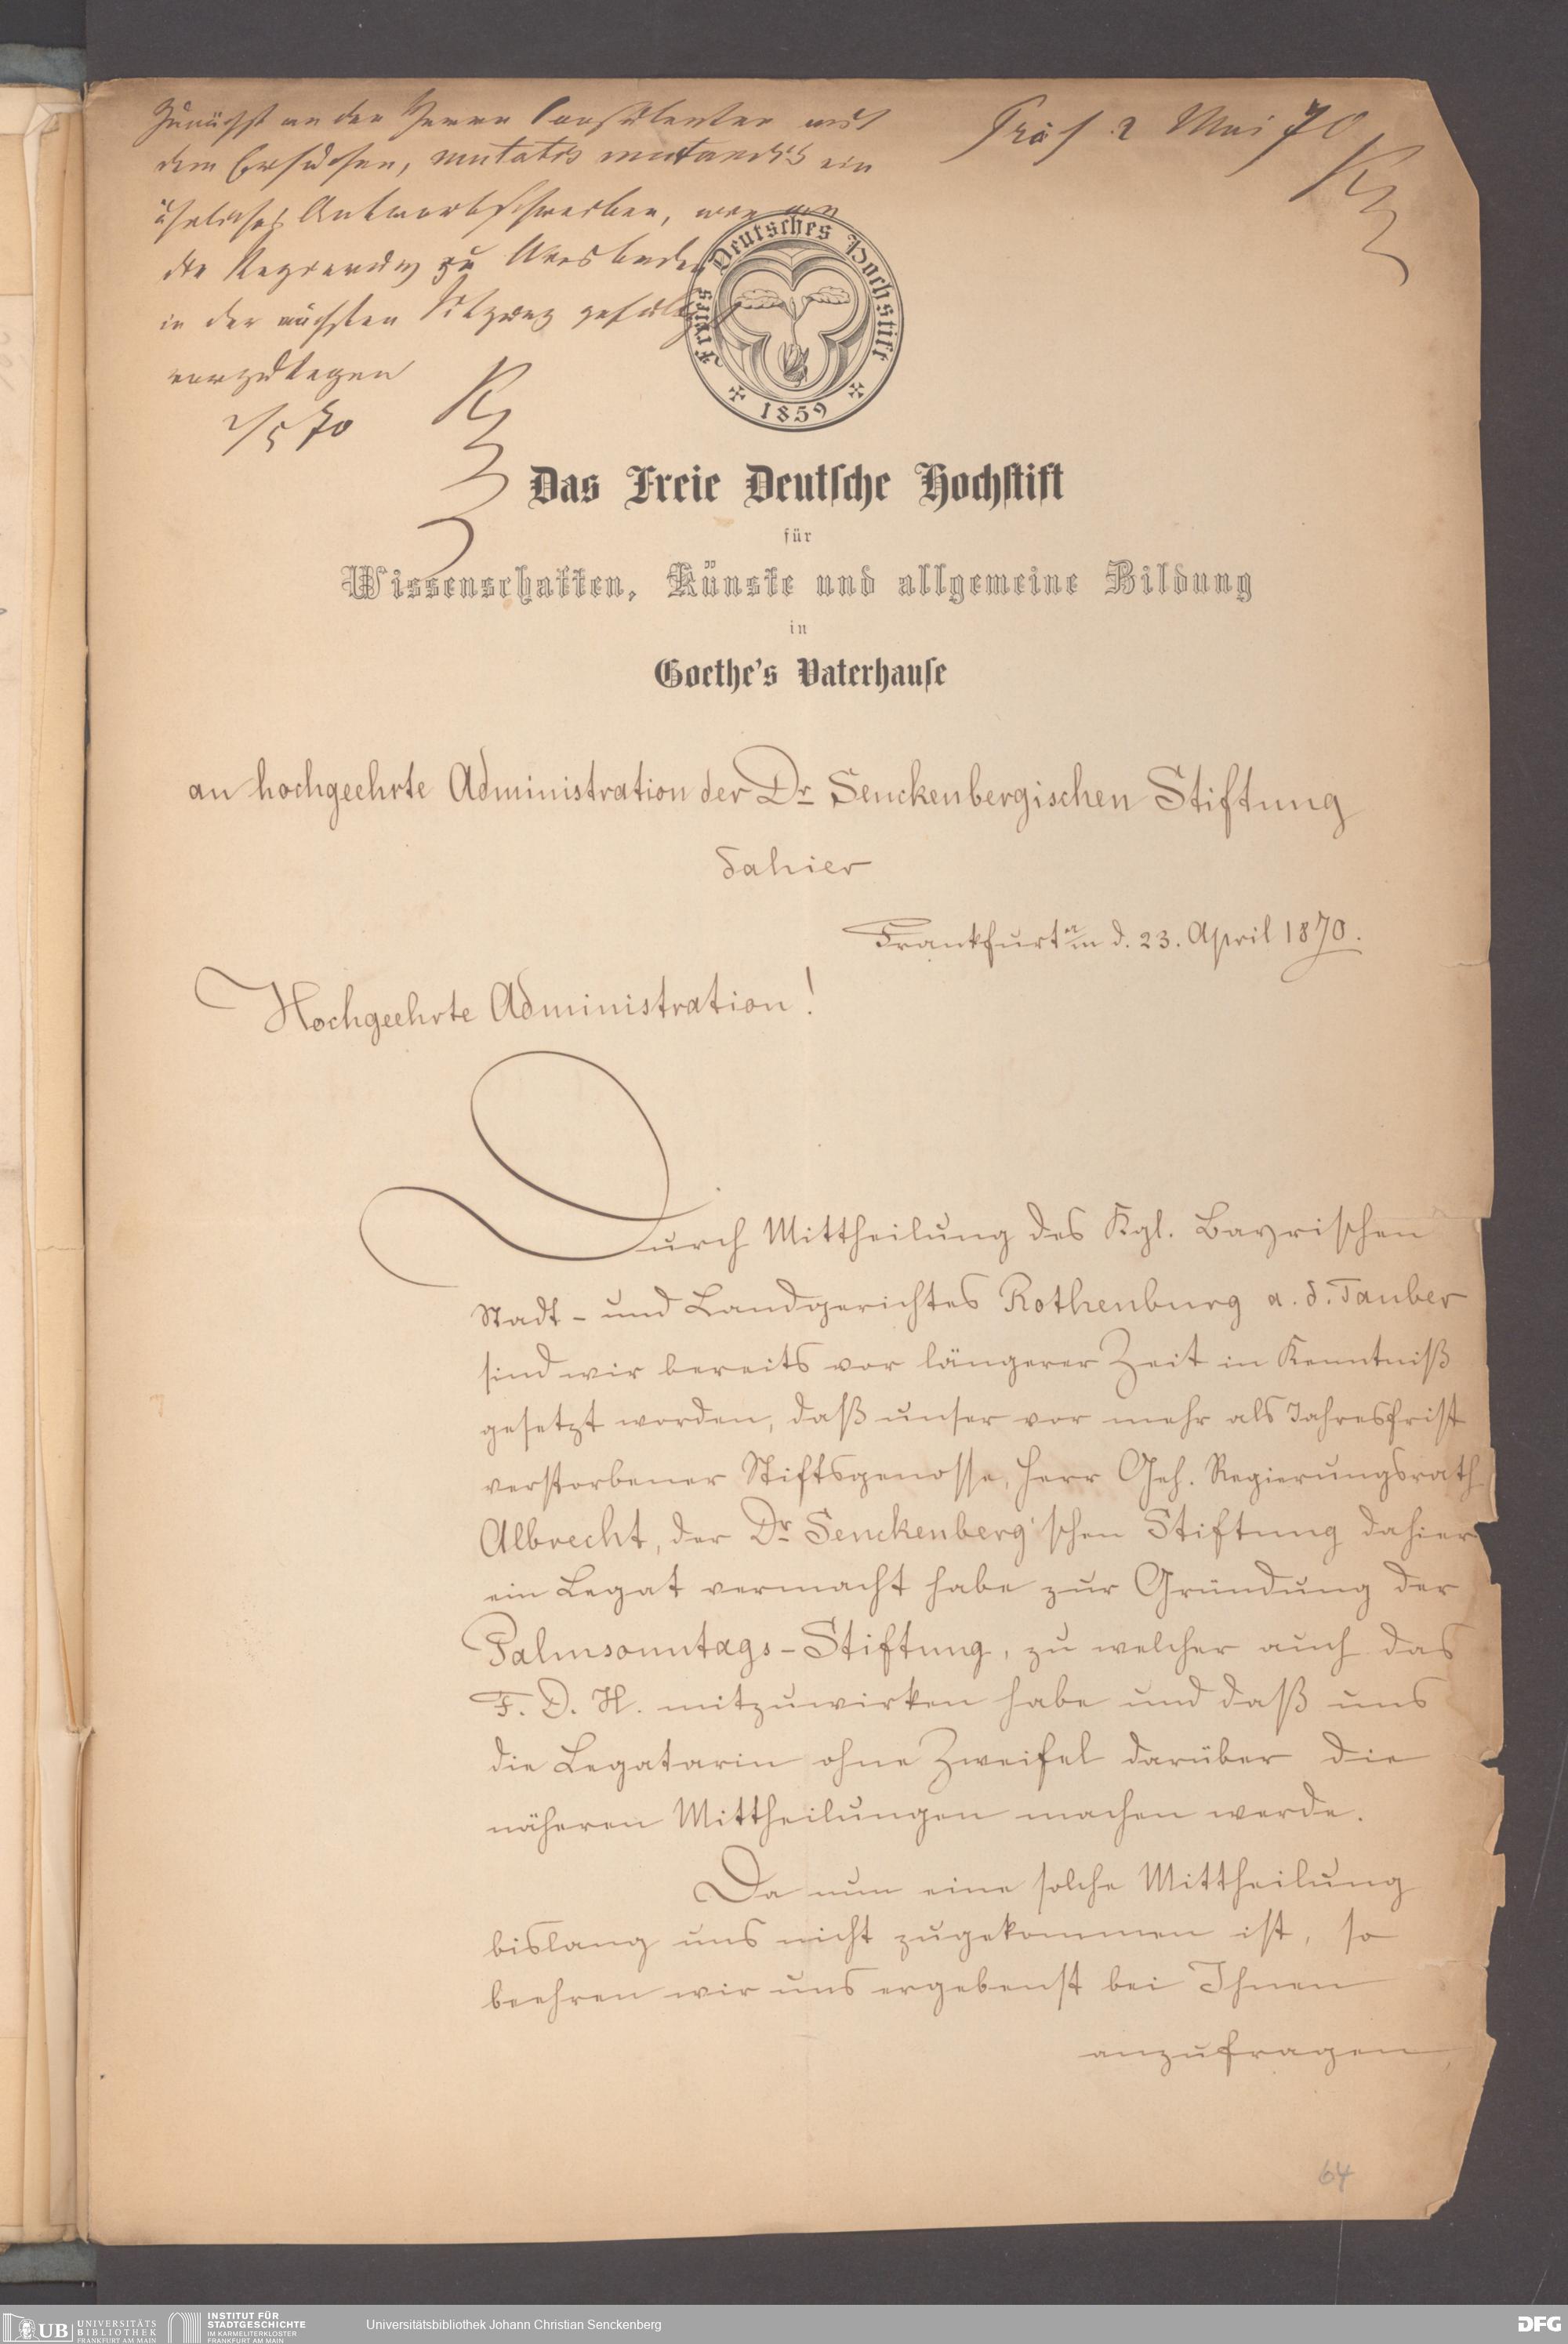 Zunächst an den Herrn Consulenten mit
dem Ersuchen, mutatis mutandis ein
ähnliches Antwortschreiben, wie an
die Regierung zu Wiesbaden
in der nächsten Sitzung gefälligst
vorzulegen
2/5 70
Präs. 2 Mai 70
Freies Deutsches Hochstift
1859
Das Freie Deutsche Hochstift
für
Wissenschaften, Künste und allgemeine Bildung
in
Goethe's Vaterhause
an hochgeehrte Administration der Dr Senckenbergischen Stiftung
dahier
Frankfurt a/m d. 23. April 1870.
Hochgeehrte Administration!
Durch Mittheilung des Kgl. Bayrischen
Stadt- und Landgerichtes Rothenburg a. d. Tauber
sind wir bereits vor längerer Zeit in Kenntniß
gesetzt worden, daß unser vor mehr als Jahresfrist
verstorbener Stiftsgenosse, Herr Geh. Regierungsrath
Albrecht, der Dr Senckenberg'schen Stiftung dahier
ein Legat vermacht habe zur Gründung der
Palmsonntags-Stiftung, zu welcher auch das
F. D. H. mitzuwirken habe und daß uns
die Legatarin ohne Zweifel darüber die
näheren Mittheilungen machen werde.
Da nun eine solche Mittheilung
bislang uns nicht zugekommen ist, so
beehren wir uns ergebenst bei Ihnen
anzufragen,
64
UB UNIVERSITÄTS
BIBLIOTHEK
FRANKFURT AM MAIN
INSTITUT FÜR
STADTGESCHICHTE
IM KARMELITERKLOSTER
FRANKFURT AM MAIN
Universitätsbibliothek Johann Christian Senckenberg
DFG